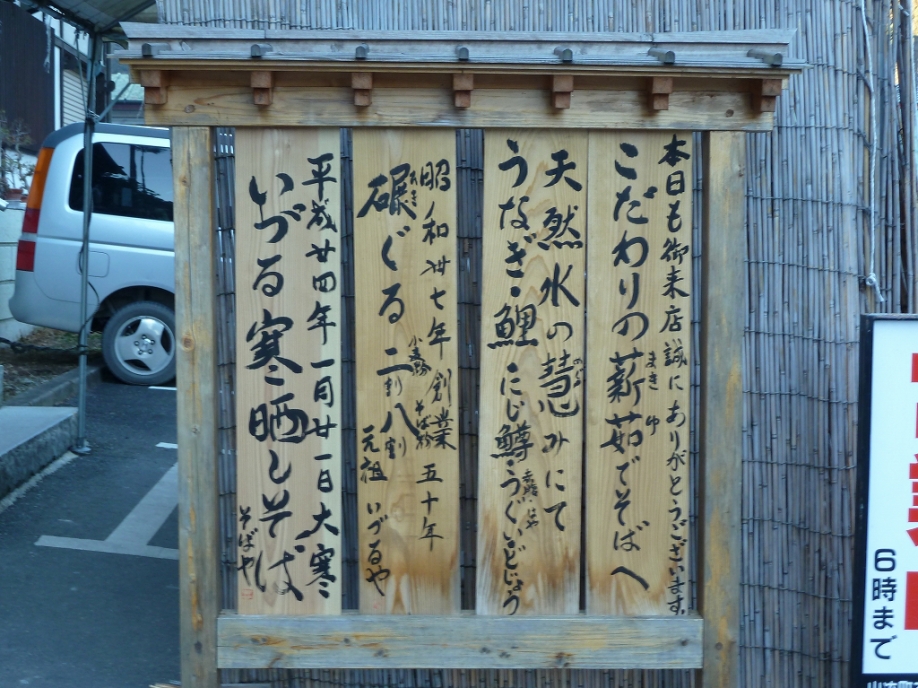 本日も御来店誠にありがとうございます。
こだわりの薪茹でそばへ
まき ゆ
天然水の慧みにて
うなぎ・鯉・にじ鱒・うぐい・どじょう
昭和卅七年創業五十年
碾ぐるみ二割八割
小麦粉
そば粉
元祖 いづるや
平成廿四年一月廿一日大寒
いづる寒晒しそば
そばや
6時まで